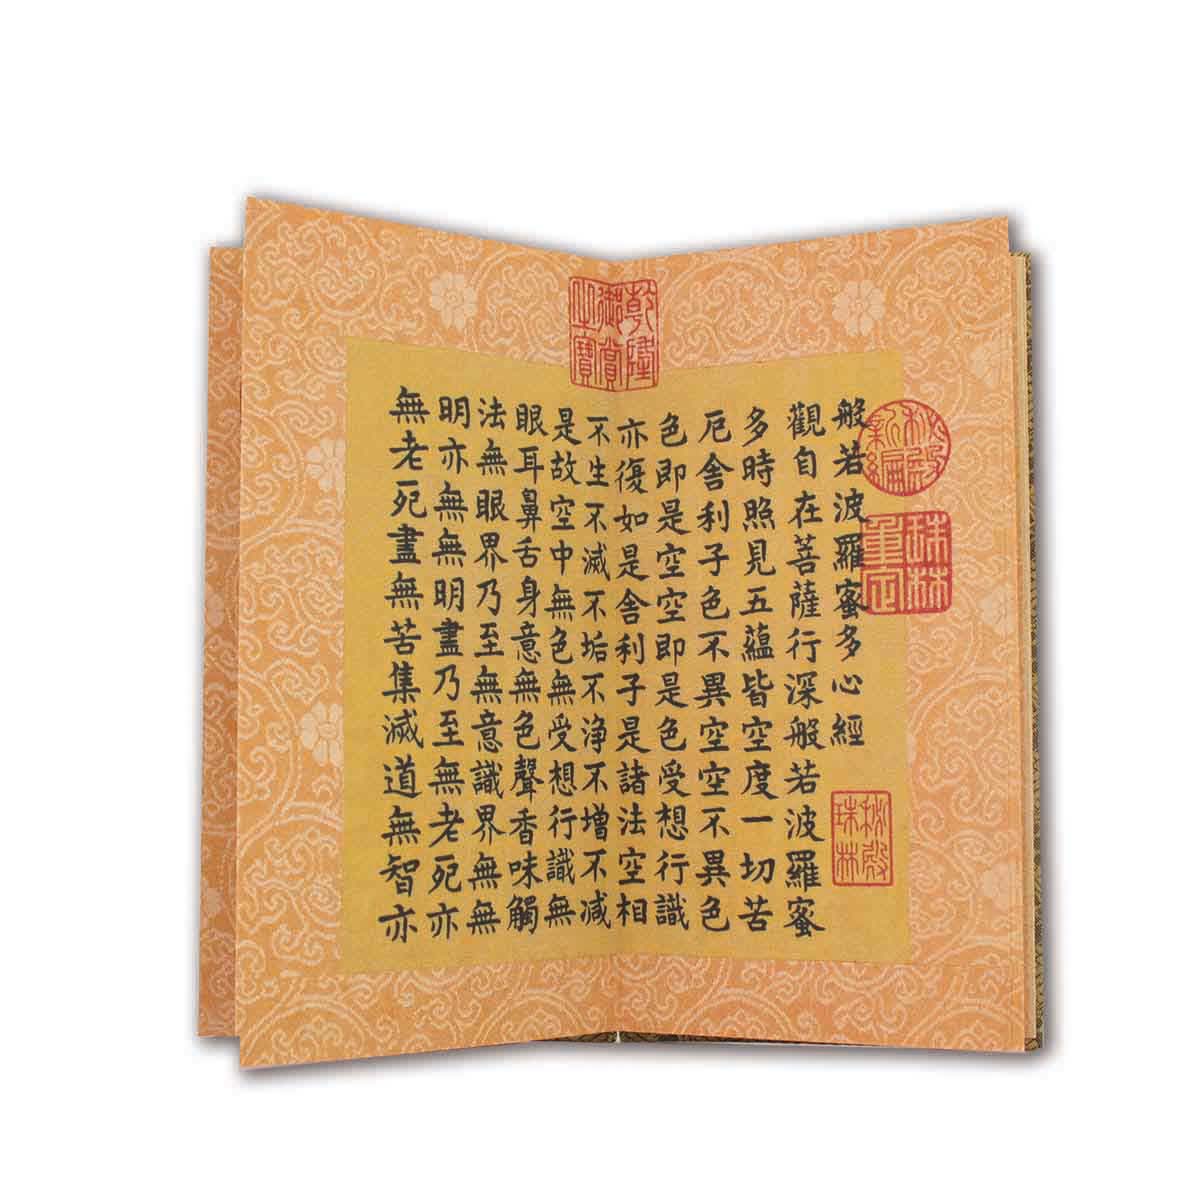 乾隆
御賞
之寶
秘殿
新編
珠林
重定
般若波羅蜜多心經
秘殿
珠林
觀自在菩薩行深般若波羅蜜
多時照見五蘊皆空度一切苦
厄舍利子色不異空空不異色
色即是空空即是色受想行識
亦復如是舍利子是諸法空相
不生不滅不垢不淨不增不減
是故空中無色無受想行識無
眼耳鼻舌身意無色聲香味觸
法無眼界乃至無意識界無無
明亦無無明盡乃至無老死亦
無老死盡無苦集滅道無智亦